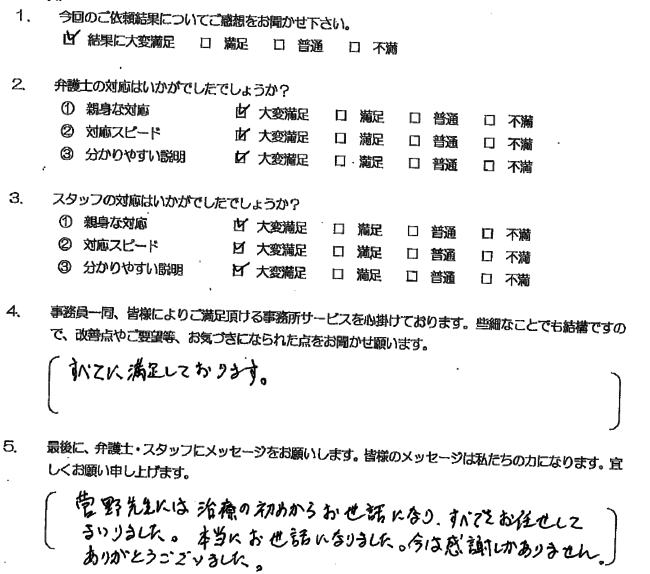 1. 今回のご依頼結果についてご感想をお聞かせ下さい。
☑ 結果に大変満足 □ 満足 □ 普通 □ 不満
2. 弁護士の対応はいかがでしたでしょうか？
① 親身な対応 ☑ 大変満足 □ 満足 □ 普通 □ 不満
② 対応スピード ☑ 大変満足 □ 満足 □ 普通 □ 不満
③ 分かりやすい説明 ☑ 大変満足 □ 満足 □ 普通 □ 不満
3. スタッフの対応はいかがでしたでしょうか？
① 親身な対応 ☑ 大変満足 □ 満足 □ 普通 □ 不満
② 対応スピード ☑ 大変満足 □ 満足 □ 普通 □ 不満
③ 分かりやすい説明 ☑ 大変満足 □ 満足 □ 普通 □ 不満
4. 事務員一同、皆様によりご満足頂ける事務所サービスを心掛けております。些細なことでも結構ですの
で、改善点やご要望等、お気づきになられた点をお聞かせ願います。
すべてに満足しております。
5. 最後に、弁護士・スタッフにメッセージをお願いします。皆様のメッセージは私たちの力になります。宜
しくお願い申し上げます。
菅野先生には治療の初めからお世話になり、すべてをお任せして
まいりました。本当にお世話になりました。今は感謝しかありません。
ありがとうございました。